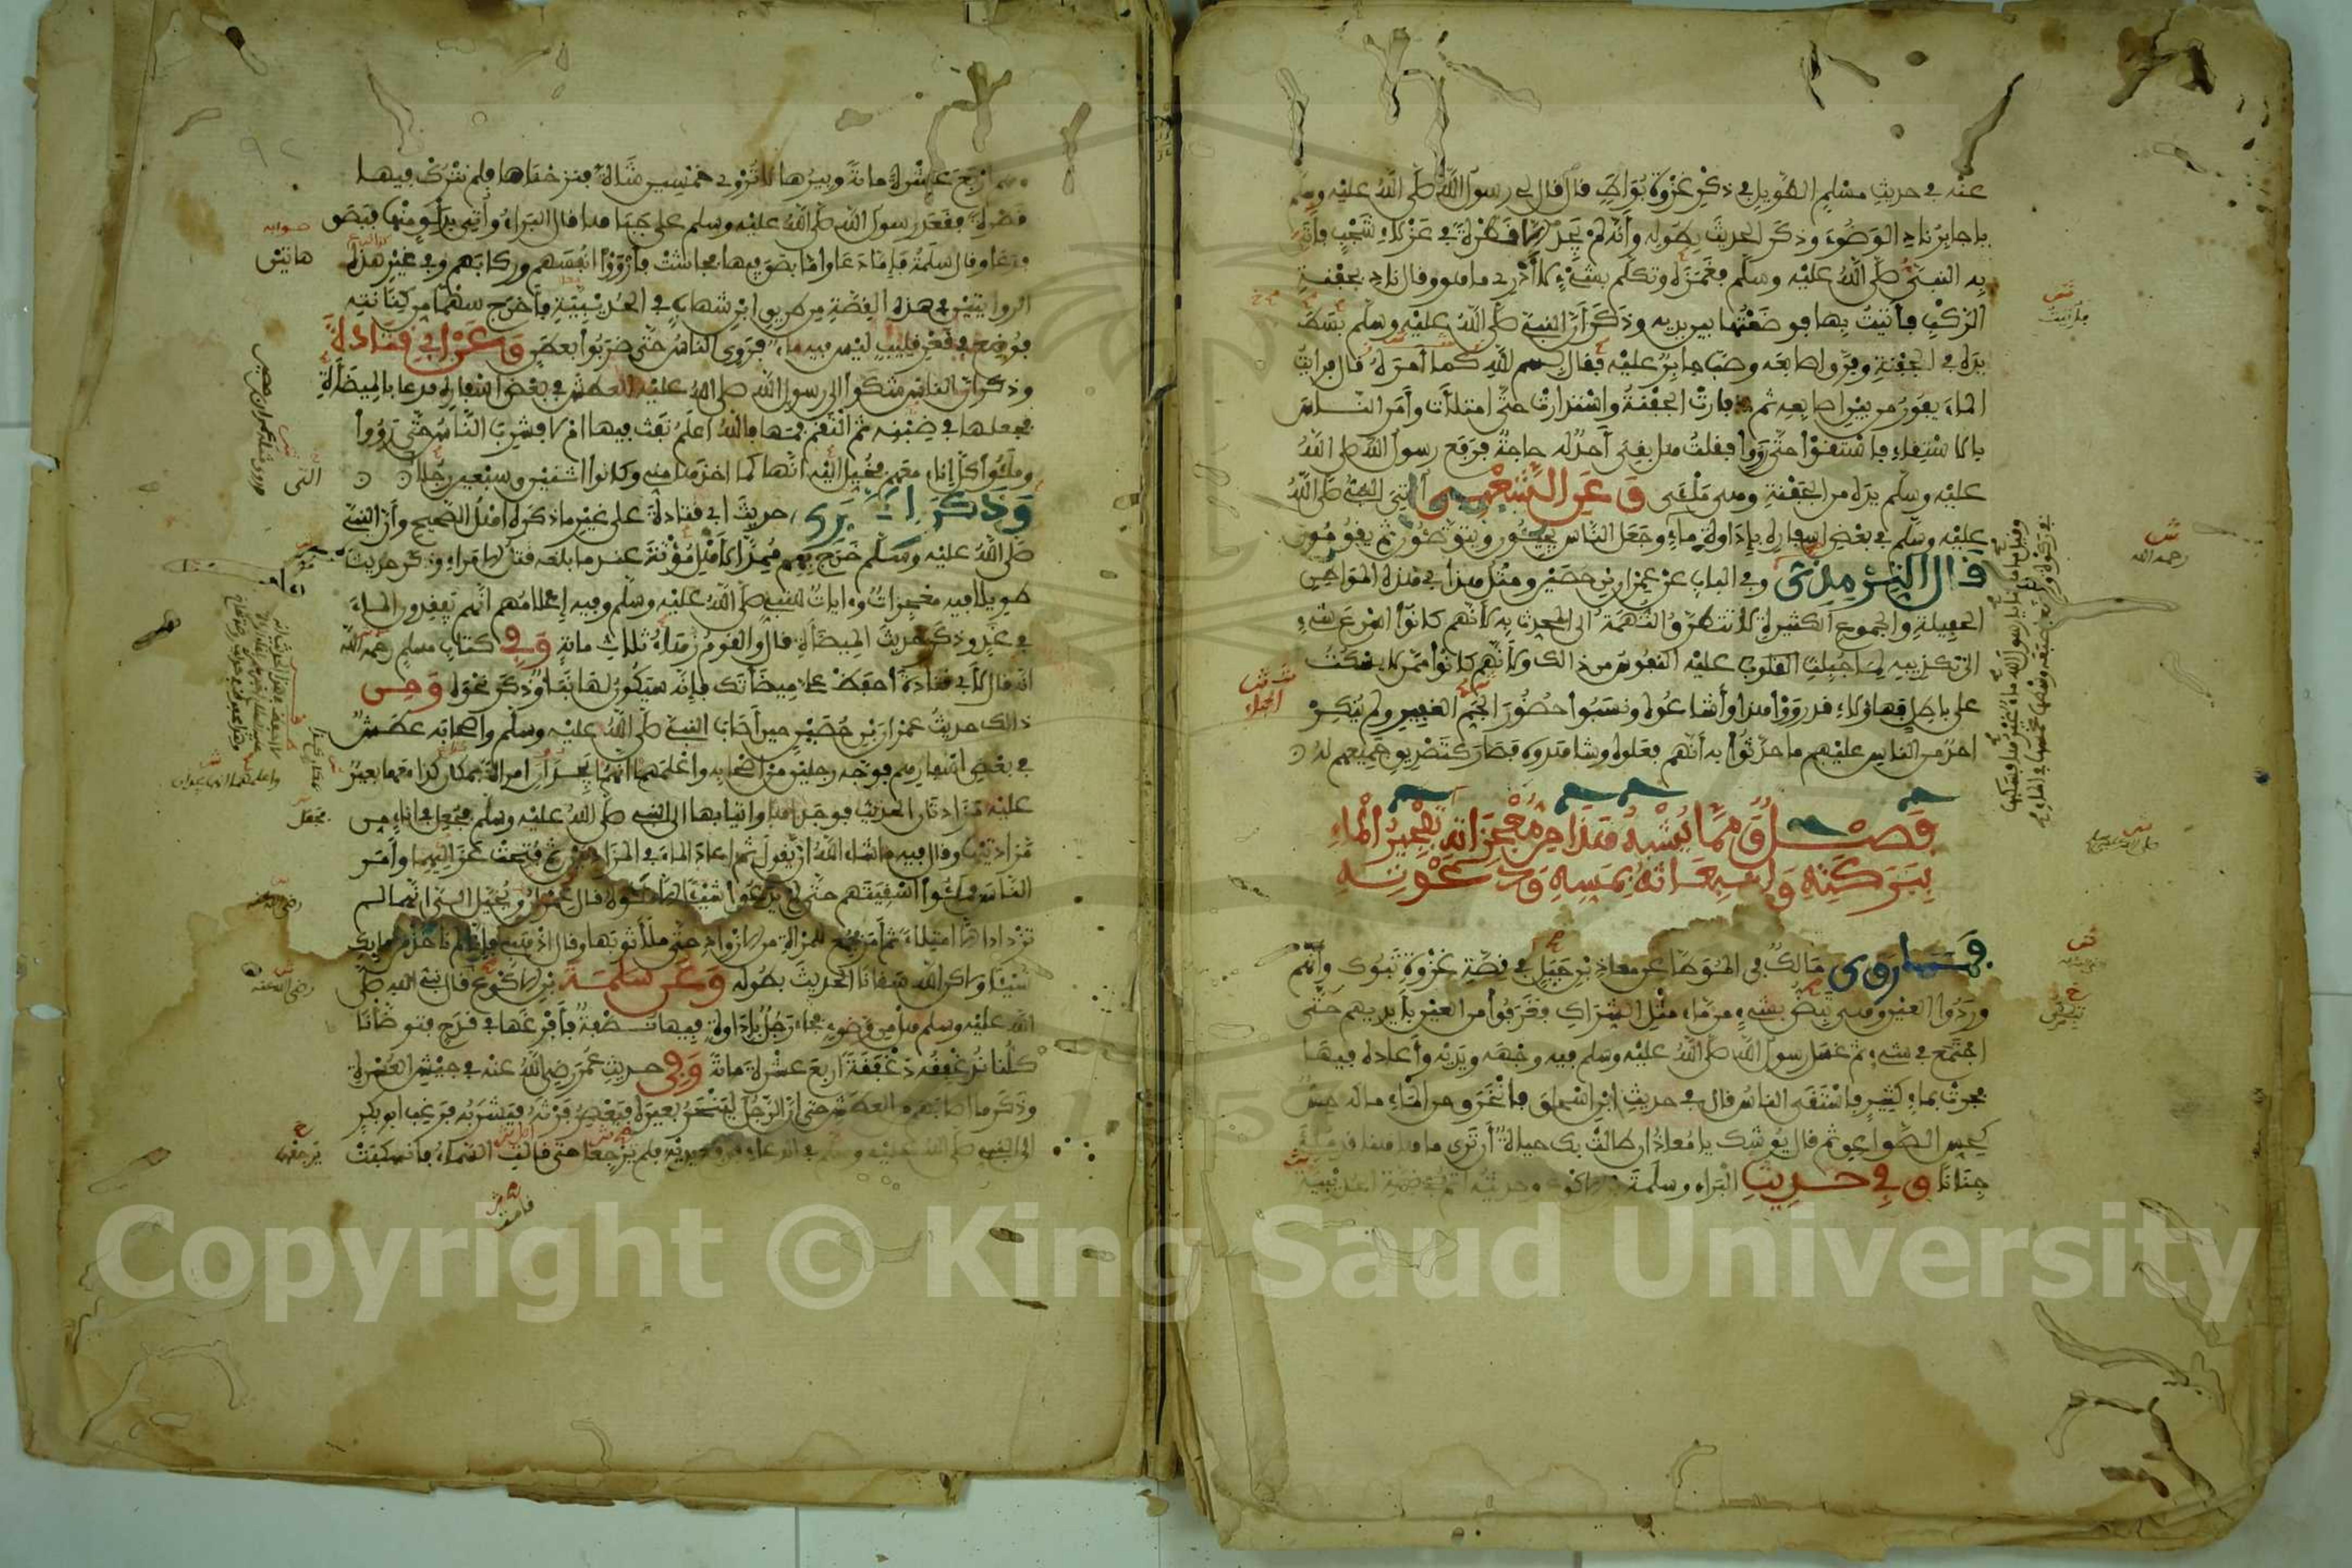 عنه في حديث مسلم الطويل في ذكر غزوة بواط قال قال لي رسول الله صلى الله عليه وسلم
يا جابر ناد الوضوء وذكر الحديث بطوله وأنه لم يجد إلا قطرة في عزلاء شجب فأتي
به النبي صلى الله عليه وسلم فغمزه وتكلم بشيء لا أدري ما هو وقال ناد بجفنة
الركب فأتيت بها فوضعتها بين يديه وذكر أن النبي صلى الله عليه وسلم بسط
يده في الجفنة وفرق أصابعه وصب جابر عليه فقال بسم الله كما أمره قال فرأيت
الماء يفور من بين أصابعه ثم فارت الجفنة واستدارت حتى امتلأت وأمر الناس
بالاستقاء فاستقوا حتى رووا فقلت هل بقي أحد له حاجة فرفع رسول الله صلى الله
عليه وسلم يده من الجفنة وهي ملأى وعن الشعبي أتي النبي صلى الله
عليه وسلم في بعض أسفاره بإداوة ماء وجعل الناس يجيئون ويتوضئون ثم يقومون
قال الترمذي وفي الباب عن عمران بن حصين ومثل هذا في هذه المواطن
الحفيلة والجموع الكثيرة لا تتطرق التهمة إلى المحدث به لأنهم كانوا أسرع شيء
إلى تكذيبه لما جبلت القلوب عليه النفوس من ذالك ولأنهم كانوا ممن لا يسكت
على باطل فهاؤلاء قد رووا هذا وأشاعوه ونسبوا حضور الجم الغفير ولم ينكر
أحد من الناس عليهم ما حدثوا به أنهم فعلوه وشاهدوه فصار كتصديق جميعهم له
فصل ومما يشبه هذا من معجزاته تفجير الماء
ببركته وانبعاثه بمسه ودعوته
فيما روى مالك في الموطأ عن معاذ بن جبل في قصة غزوة تبوك وأنهم
وردوا العين وهي تبض بشيء من ماء مثل الشراك فغرفوا من العين بأيديهم حتى
اجتمع في شيء ثم غسل رسول الله صلى الله عليه وسلم فيه وجهه ويديه وأعاده فيها
فجرت بماء كثير فاستقى الناس قال في حديث ابن إسحاق فانخرق من الماء ما له حس
كحس الصواعق ثم قال يوشك يا معاذ إن طالت بك حياة أن ترى ما هاهنا قد ملئ
جنانا وفي حديث البراء وسلمة بن الأكوع وحديثه أتم في قصة الحديبية
وهم أربع عشرة مائة وبيرها لا تروي خمسين شاة فنزحناها فلم نترك فيها
قطرة فقعد رسول الله صلى الله عليه وسلم على جباها قال البراء وأتي بدلو منها فبصق
فدعا وقال سلمة فإما دعا وإما بصق فيها فجاشت فأرووا أنفسهم وركابهم وفي غير هذه
الروايتين في هذه القصة من طريق ابن شهاب في الحديبية فأخرج سهما من كنانته
فوضع في قعر قليب ليس فيه ماء فروي الناس حتى ضربوا بعطن وعن أبي قتادة
وذكر أن الناس شكوا إلى رسول الله صلى الله عليه العطش في بعض أسفاره فدعا بالميضأة
فجعلها في ضبنه ثم التقم فمها فالله أعلم نفث فيها أم لا فشرب الناس حتى رووا
وملئوا كل إناء معهم فخيل إليه أنها كما أخذها مني وكانوا اثنين وسبعين رجلا
وذكر الطبري حديث أبي قتادة على غير ما ذكره أهل الصحيح وأن النبي
صلى الله عليه وسلم خرج بهم ممدا لأهل مؤتة عندما بلغه قتل الأمراء وذكر حديثا
طويلا فيه معجزات وءايات للنبي صلى الله عليه وسلم وفيه إعلامهم أنهم يفقدون الماء
في غد وذكر حديث الميضأة قال والقوم زهاء ثلاث مائة وفي كتاب مسلم رحمه الله
أنه قال لأبي قتادة احفظ علي ميضأتك فإنه سيكون لها نبأ وذكر نحوه ومن
ذالك حديث عمران بن حصين حين أصاب النبي صلى الله عليه وسلم وأصحابه عطش
في بعض أسفارهم فوجه رجلين من أصحابه وأعلمهما أنهما يجدان امرأة بمكان كذا معها بعير
عليه مزادتان الحديث فوجداها وأتيا بها إلى النبي صلى الله عليه وسلم فجعل في إناء من
مزادتيها وقال فيه ما شاء الله أن يقول ثم أعاد الماء في المزادتين ثم فتحت عزاليهما وأمر
الناس فملئوا أسقيتهم حتى لم يدعوا شيئا إلا ملئوه قال عمران ويخيل إلي أنهما لم
تزدادا إلا امتلاء ثم أمر فجمع للمرأة من الأزواد حتى ملأ ثوبها وقال اذهبي فإنا لم نأخذ من مائك
شيئا ولكن الله سقانا الحديث بطوله وعن سلمة بن الأكوع قال نبي الله صلى
الله عليه وسلم هل من وضوء فجاء رجل بإداوة فيها نطفة فأفرغها في قدح فتوضأنا
كلنا ندغفقه دغفقة أربع عشرة مائة وفي حديث عمر رضي الله عنه في جيش العسرة
وذكر ما أصابهم من العطش حتى إن الرجل لينحر بعيره فيعصر فرثه فيشربه فرغب أبو بكر
إلى النبي صلى الله عليه وسلم في الدعاء فرفع يديه فلم يرجعا حتى قالت السماء فانسكبت
Copyright © King Saud University